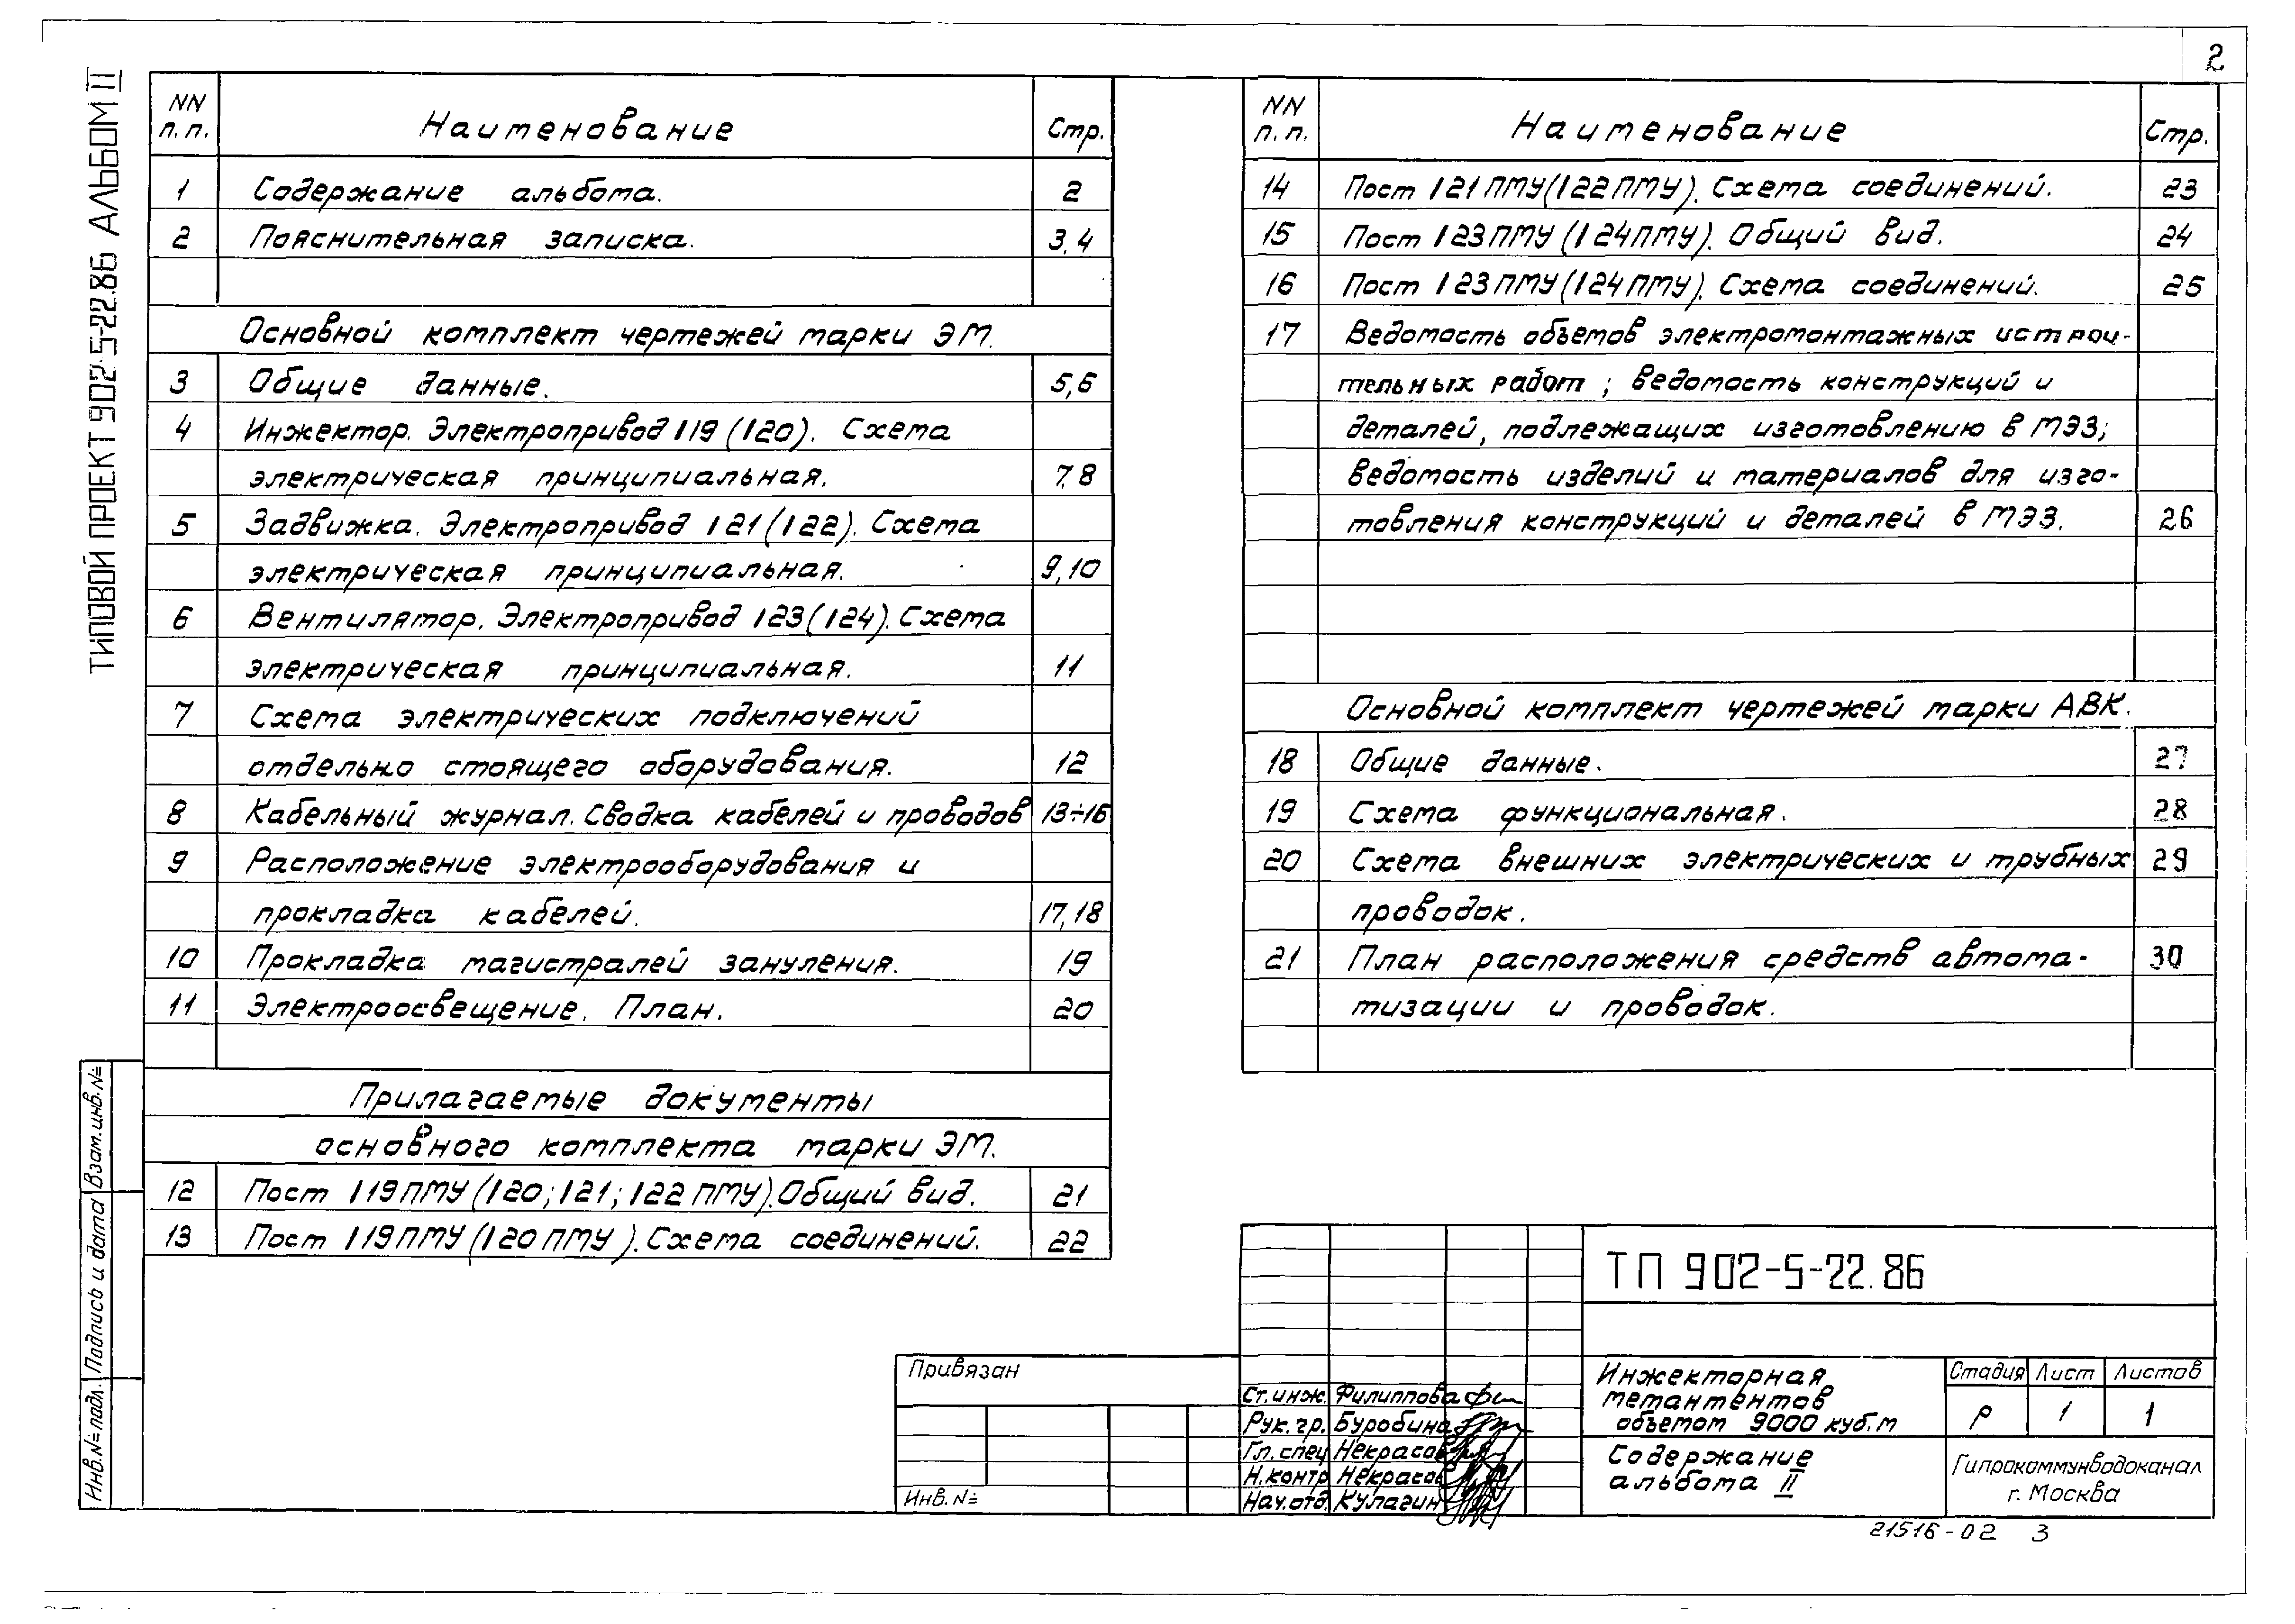 2
ТИПОВОЙ ПРОЕКТ 902-5-22.86 АЛЬБОМ II
NN п.п. Наименование Стр.
1 Содержание альбома. 2
2 Пояснительная записка. 3,4
Основной комплект чертежей марки ЭМ.
3 Общие данные. 5,6
4 Инжектор. Электропривод 119 (120). Схема
электрическая принципиальная. 7,8
5 Задвижка. Электропривод 121 (122). Схема
электрическая принципиальная. 9,10
6 Вентилятор. Электропривод 123 (124). Схема
электрическая принципиальная. 11
7 Схема электрических подключений
отдельно стоящего оборудования. 12
8 Кабельный журнал. Сводка кабелей и проводов 13÷16
9 Расположение электрооборудования и
прокладка кабелей. 17,18
10 Прокладка магистралей зануления. 19
11 Электроосвещение. План. 20
Прилагаемые документы
основного комплекта марки ЭМ.
12 Пост 119ПМУ (120; 121; 122 ПМУ). Общий вид. 21
13 Пост 119ПМУ (120 ПМУ). Схема соединений. 22
NN п.п. Наименование Стр.
14 Пост 121ПМУ (122ПМУ). Схема соединений. 23
15 Пост 123ПМУ (124ПМУ). Общий вид. 24
16 Пост 123ПМУ (124ПМУ). Схема соединений. 25
17 Ведомость объемов электромонтажных и строи-
тельных работ; ведомость конструкций и
деталей, подлежащих изготовлению в МЭЗ;
ведомость изделий и материалов для изго-
товления конструкций и деталей в МЭЗ. 26
Основной комплект чертежей марки АВК.
18 Общие данные. 27
19 Схема функциональная. 28
20 Схема внешних электрических и трубных 29
проводок.
21 План расположения средств автома- 30
тизации и проводок.
Инв.№ подл. Подпись и дата Взам.инв.№
Привязан
Инв. №
Ст.инж. Филиппова
Рук. гр. Буробина
Гл. спец Некрасов
Н.контр Некрасов
Нач.отд Кулагин
ТП 902-5-22.86
Инжекторная
метантенков
объемом 9000 куб.м
Стадия Лист Листов
Р 1 1
Содержание
альбома II
Гипрокоммунводоканал
г. Москва
21516-02 3